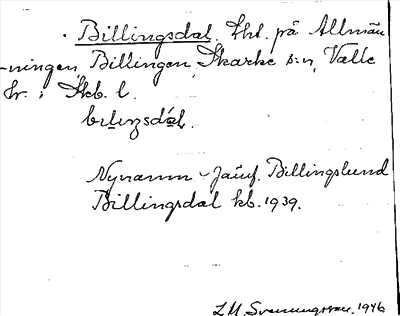 Billingsdal. Lht. på Allmän
-ningen Billingen, Skarke s:n, Valle
hr. i Skb. l.
Nynamn - Jämf. Billingslund
Billingsdal kb. 1939.
L M Svenungsson. 1946